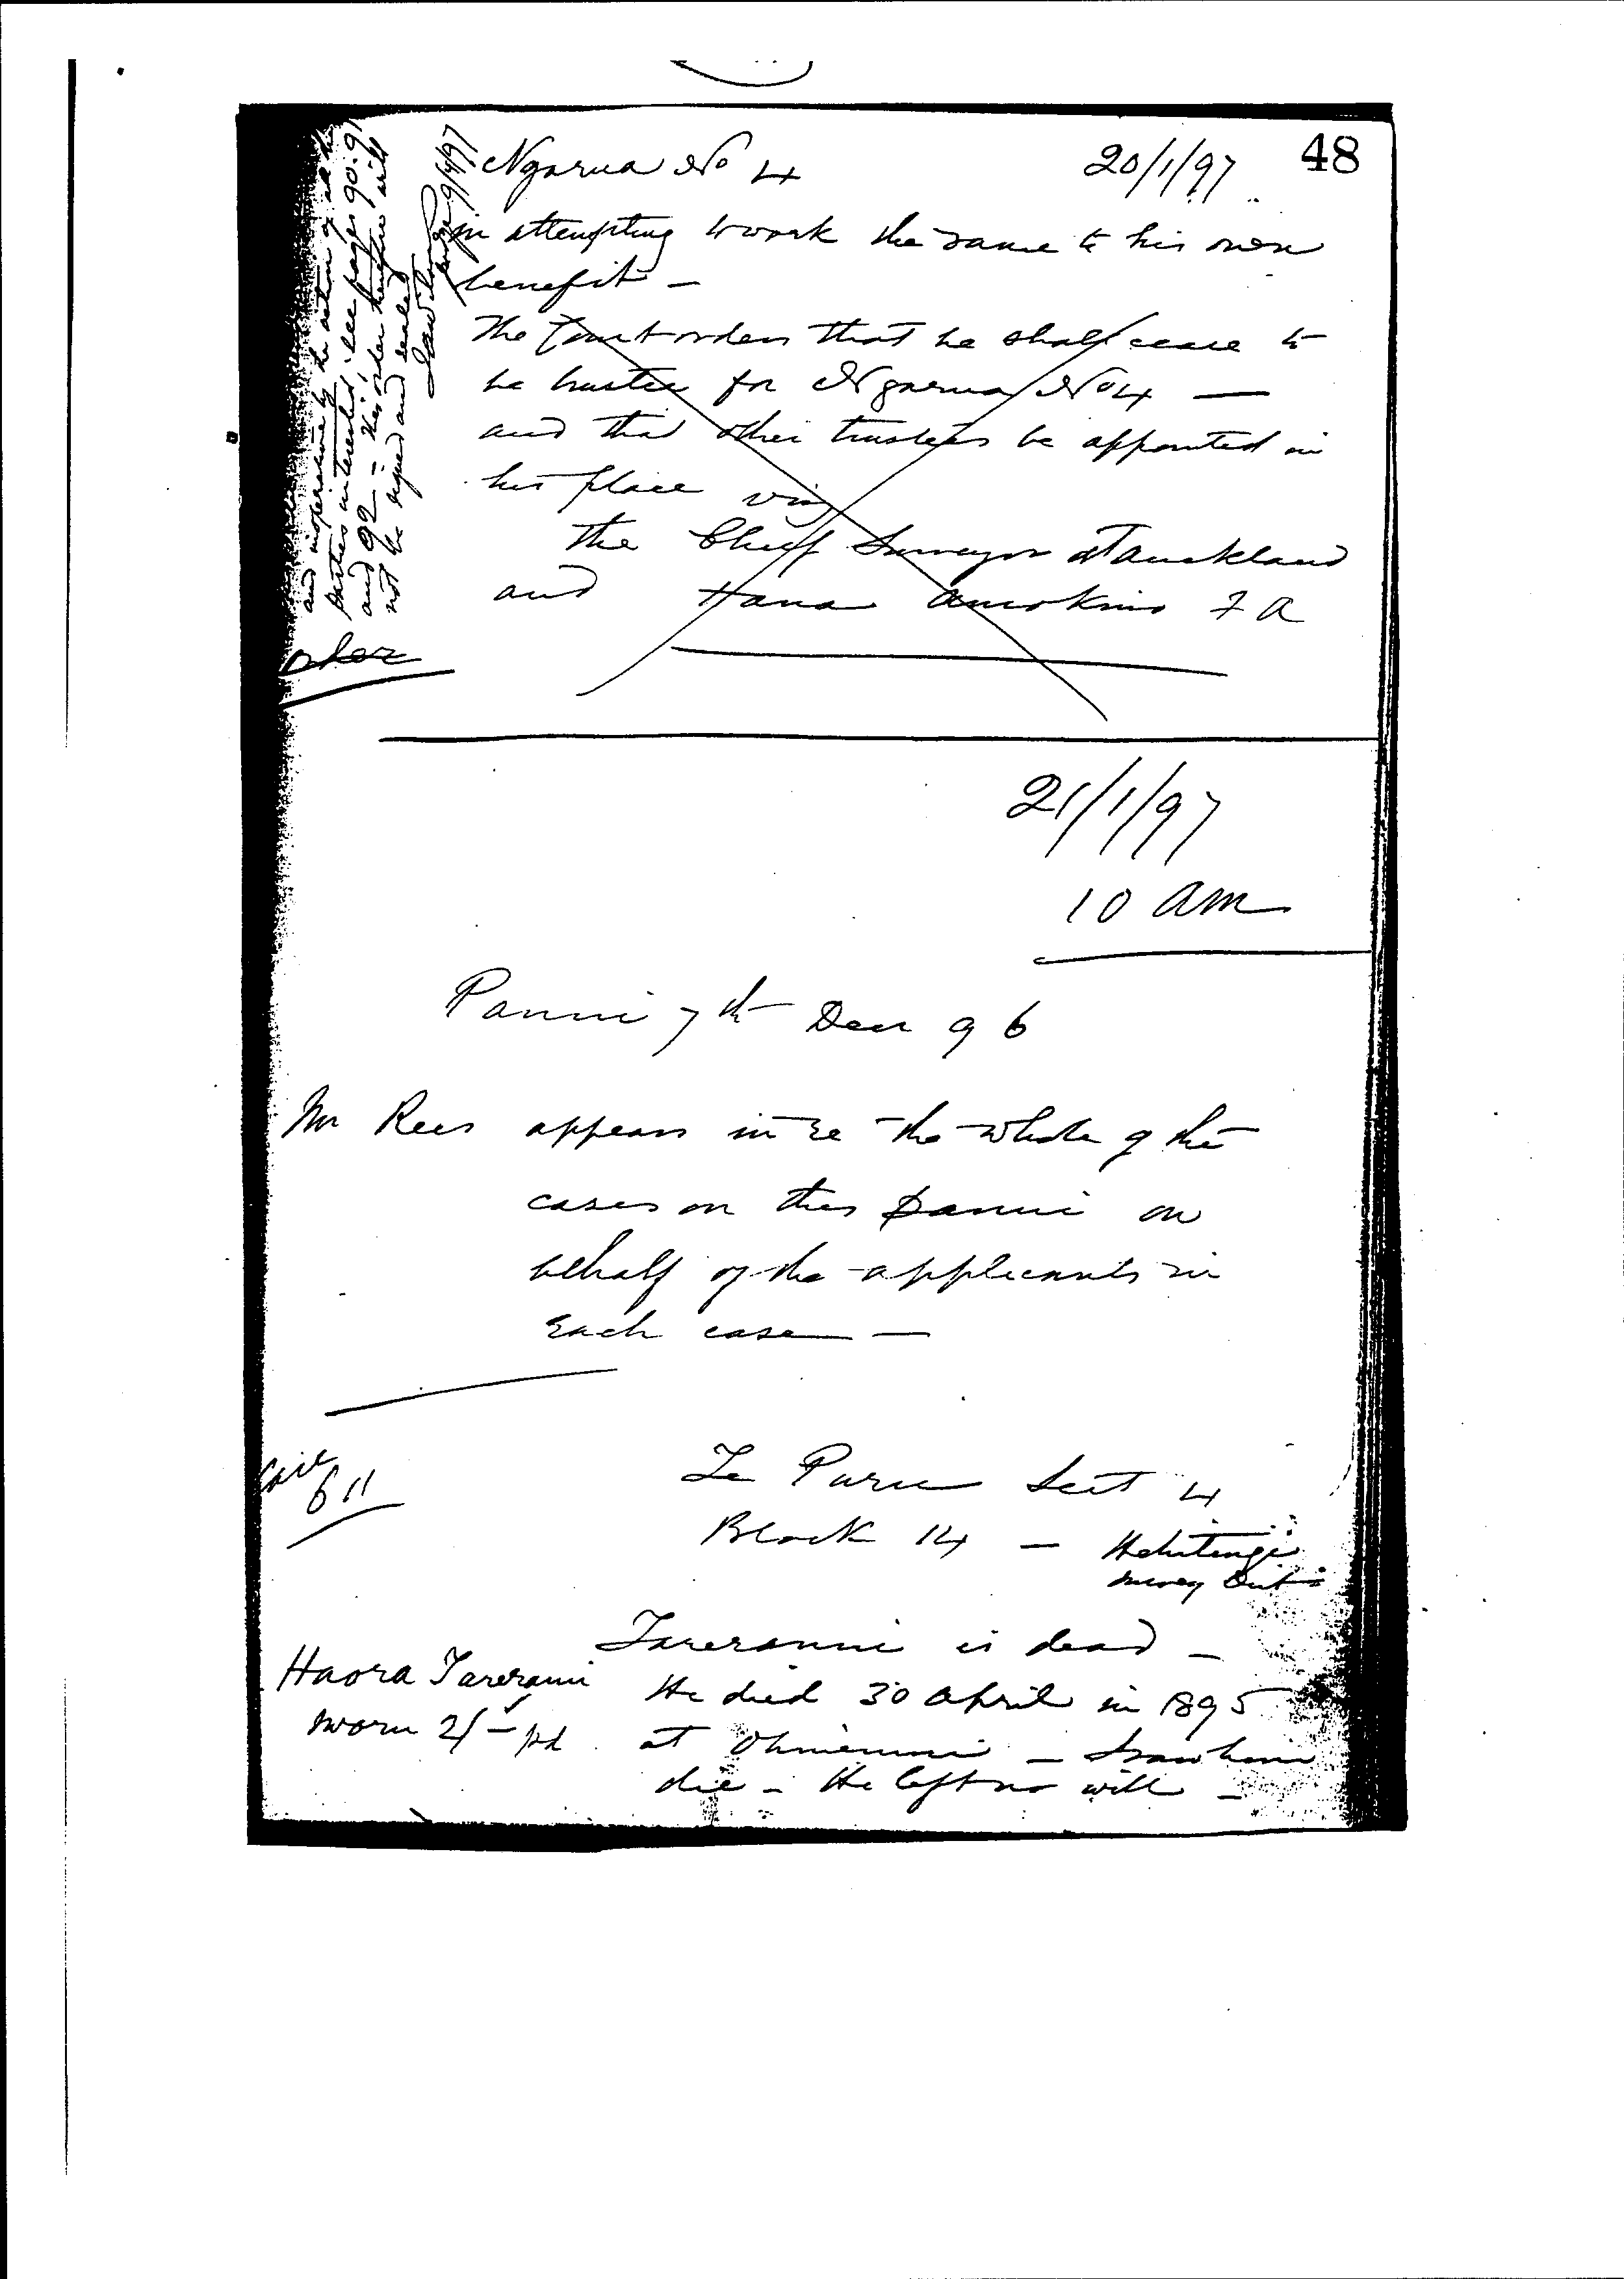 48
Ngarua No 4 20/1/97
in attempting to work the same to his own
benefit —
The Court orders that he shall cease to
be trustee for Ngarua No 4 —
and that other trustees be appointed in
his place viz
the Chief Surveyor at Auckland
and Hana F A
and inoperative by the action of all the
parties interested, see pages 90. 91
and 92 — this order therefore will
not be signed and sealed
9/4/97
Order
21/1/97
10 am
Panui 7th Decr 96
Mr Rees appears in re the whole of the
cases on this panui on
behalf of the applicants in
Each case —
Case
611
Te Puru Sect 4
Block 14 — Hastings
Survey Dist
Tareranui is dead —
Haora Tareranui He died 30 April in 1895
sworn 2/- pd at Ohinemuri — I saw him
die — He left no will —